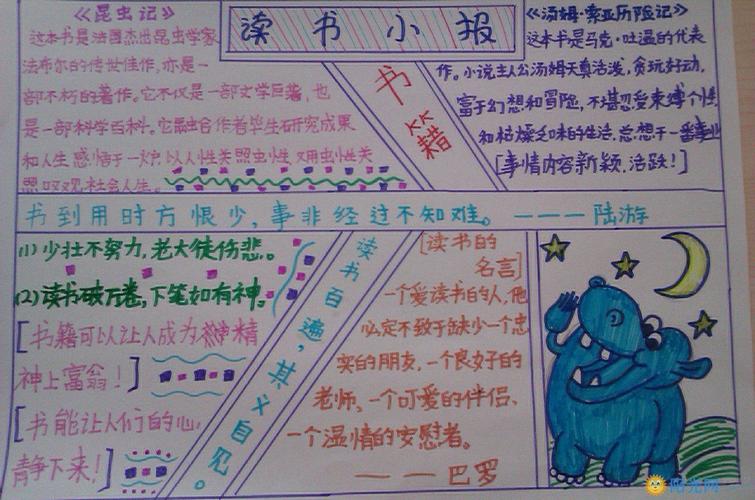 读书小报
《昆虫记》
这本书是法国杰出昆虫学家
法布尔的传世佳作,亦是一
部不朽的著作。它不仅是一部文学巨著,也
是一部科学百科。它昆虫合作者毕生研究成果
和人生感悟于一炉以人性关照虫性又用虫性关
照 社会人生。
书籍
《汤姆·索亚历险记》
这本书是马克·吐温的代表
作。小说主人公汤姆天真活泼,贪玩好动,
富于幻想和冒险,不堪忍受束缚个性
和枯燥乏味的生活,总想干一番事业
[事情内容新颖,活跃!]
书到用时方恨少,事非经过不知难。———陆游
(1)少壮不努力,老大徒伤悲。
(2)读书破万卷,下笔如有神。
[书籍可以让人成为 精
神上富翁!]
[书能让人们的心
静下来!]
读书百遍,其义自见。
[读书的
名言]
一个爱读书的人,他
必定不致于缺少一个忠
实的朋友,一个良好的
老师、一个可爱的伴侣、
一个温情的安慰者。
——巴罗
阳光网